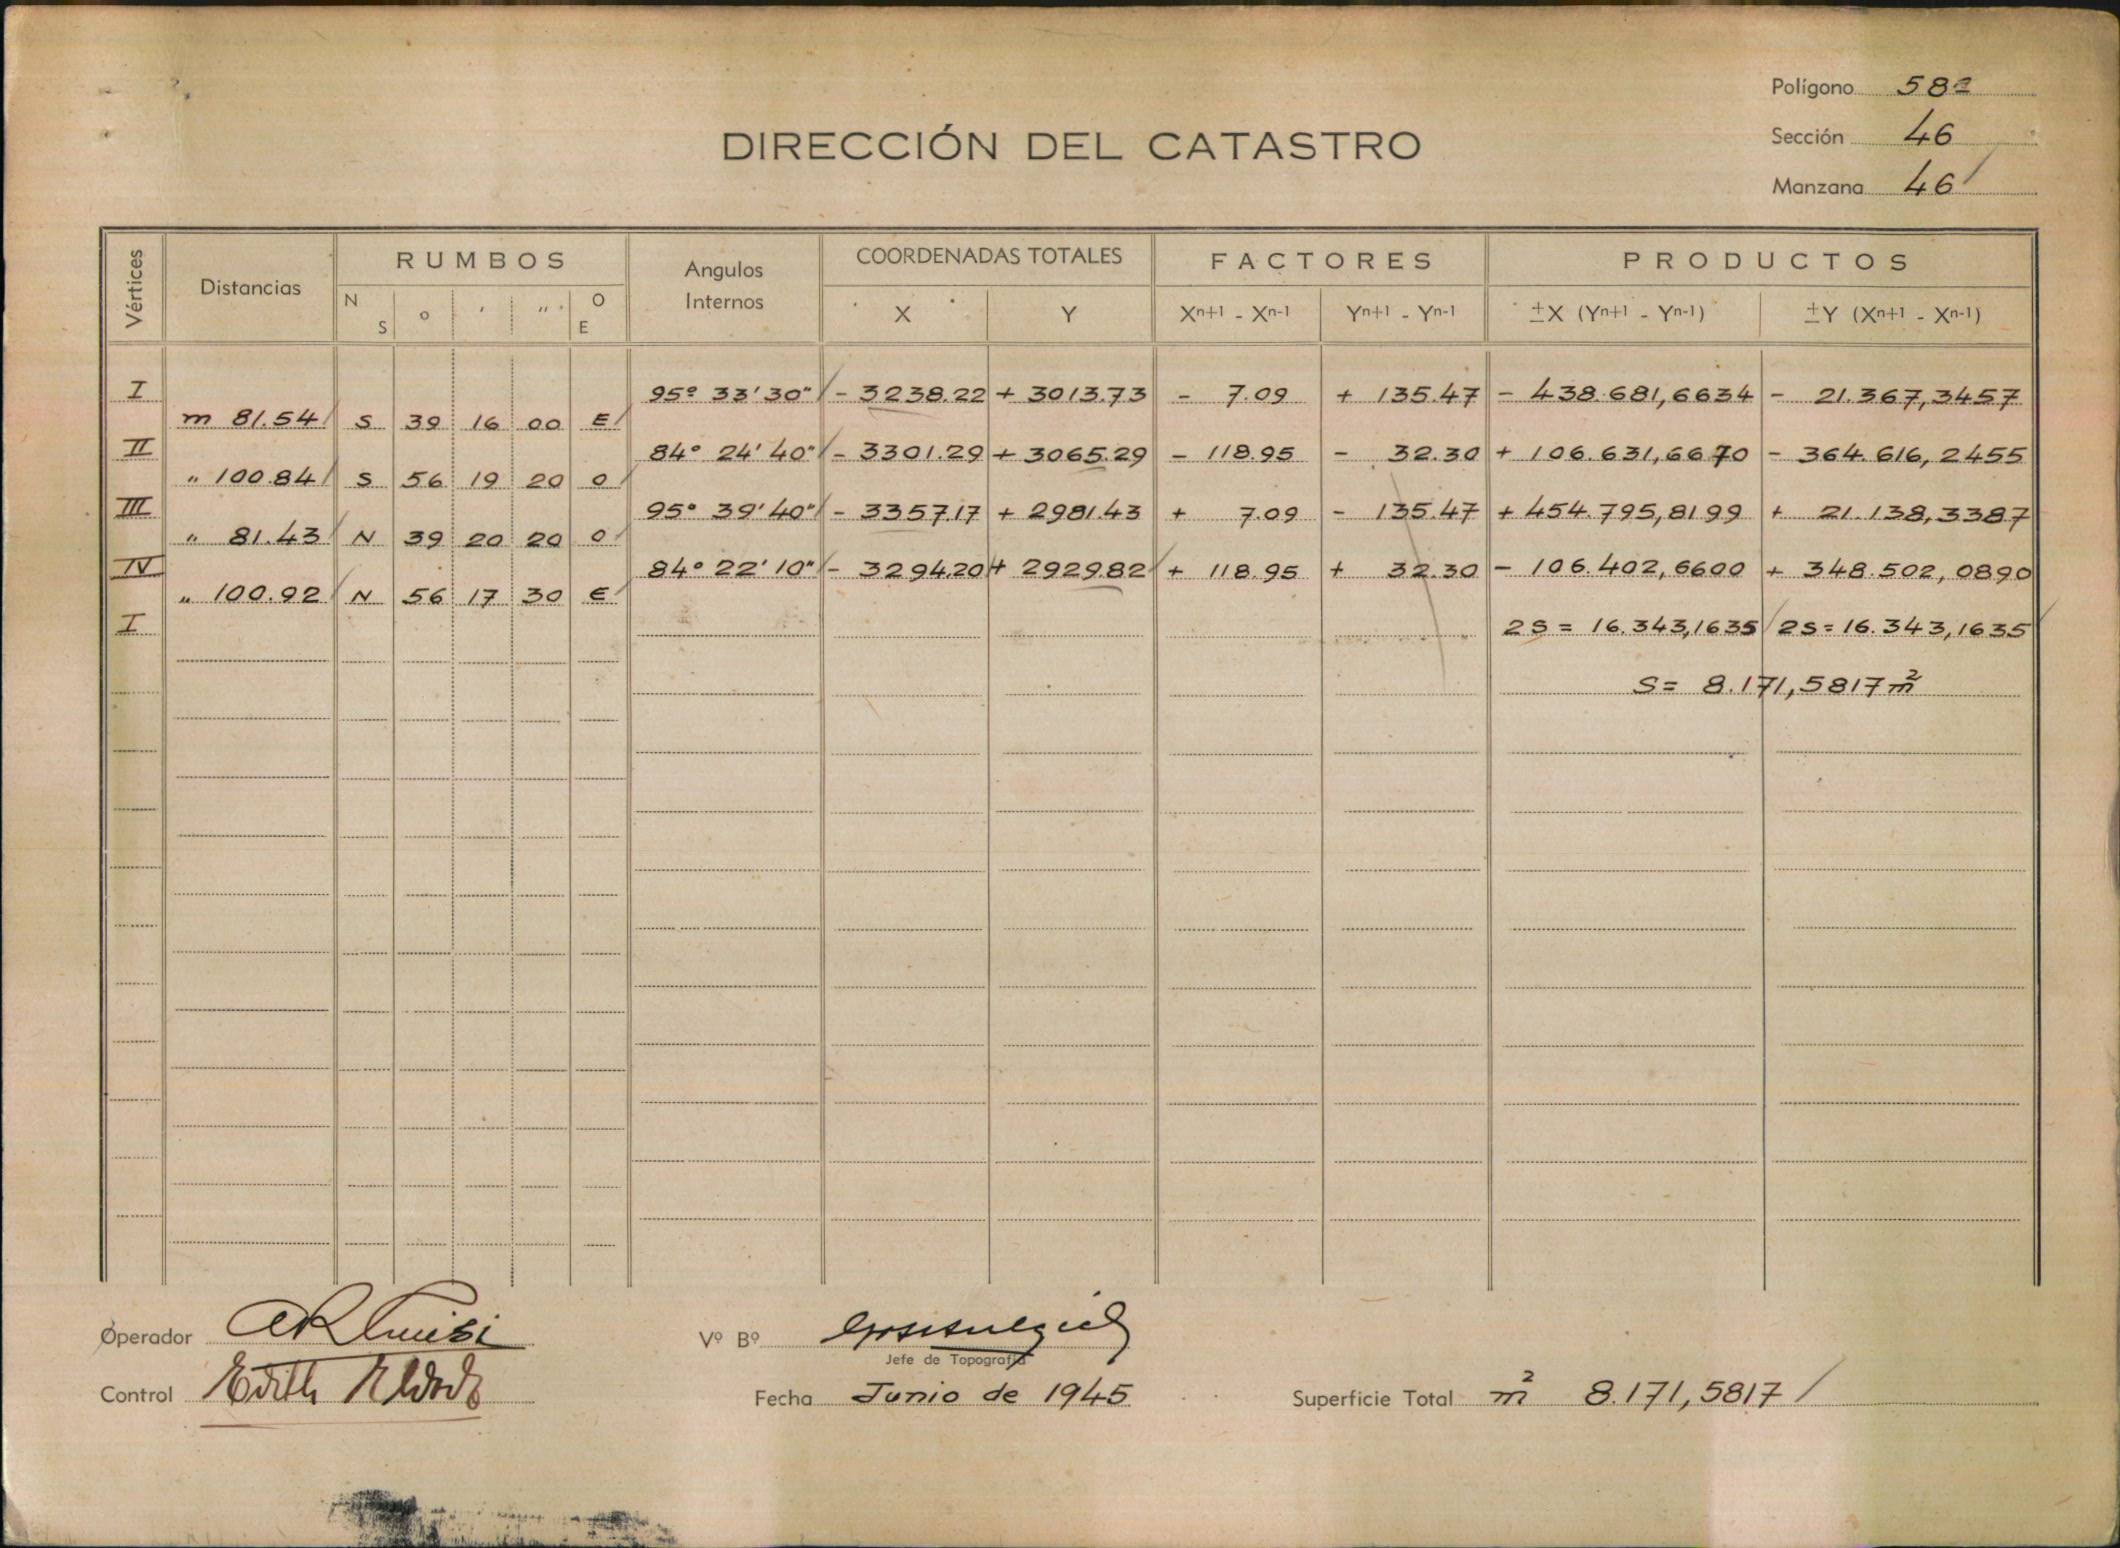 Polígono 58a
Sección 46
Manzana 46
DIRECCIÓN DEL CATASTRO
Vértices Distancias RUMBOS Angulos Internos COORDENADAS TOTALES FACTORES PRODUCTOS
N S o ' " O E X Y Xn+1 - Xn-1 Yn+1 - Yn-1 ±X (Yn+1 - Yn-1) ±Y (Xn+1 - Xn-1)
I 95º 33' 30" - 3238.22 + 3013.73 - 7.09 + 135.47 - 438.681,6634 - 21.367,3457
m 81.54 S 39 16 00 E
II 84º 24' 40" - 3301.29 + 3065.29 - 118.95 - 32.30 + 106.631,6670 - 364.616,2455
" 100.84 S 56 19 20 O
III 95º 39' 40" - 3357.17 + 2981.43 + 7.09 - 135.47 + 454.795,8199 + 21.138,3387
" 81.43 N 39 20 20 O
IV 84º 22' 10" - 3294.20 + 2929.82 + 118.95 + 32.30 - 106.402,6600 + 348.502,0890
" 100.92 N 56 17 30 E
I 2S = 16.343,1635 2S = 16.343,1635
S = 8.171,5817 m²
Operador
Vº Bº
Jefe de Topografía
Control Edith
Fecha Junio de 1945
Superficie Total m² 8.171,5817